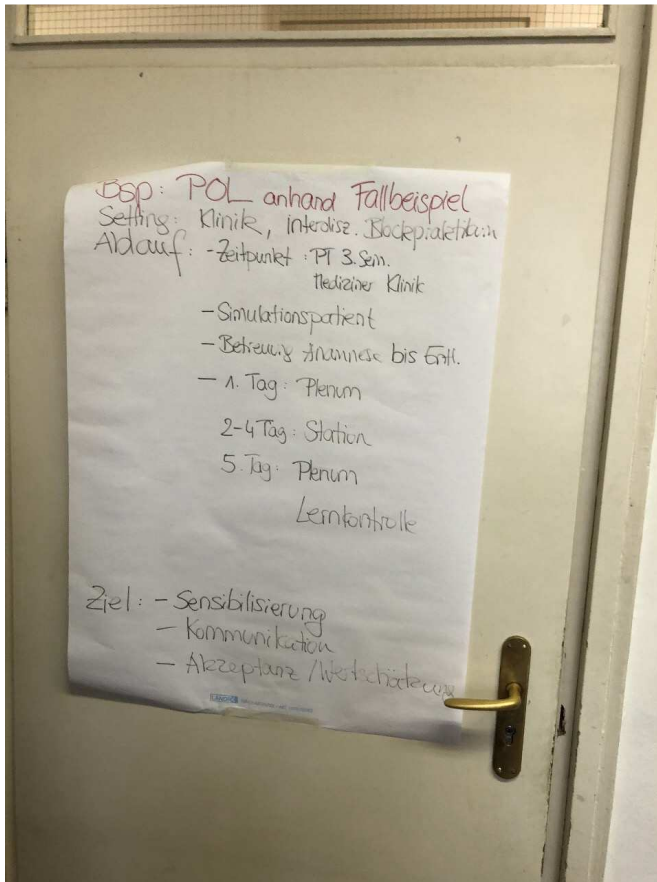 Bsp: POL anhand Fallbeispiel
Setting: Klinik, interdisz. Blockpraktikum
Ablauf: - Zeitpunkt: PT 3. Sem.
Mediziner Klinik
- Simulationspatient
- Betreuung Anamnese bis Entl.
- 1. Tag: Plenum
2-4 Tag: Station
5. Tag: Plenum
Lernkontrolle
Ziel: - Sensibilisierung
- Kommunikation
- Akzeptanz / Wertschätzung